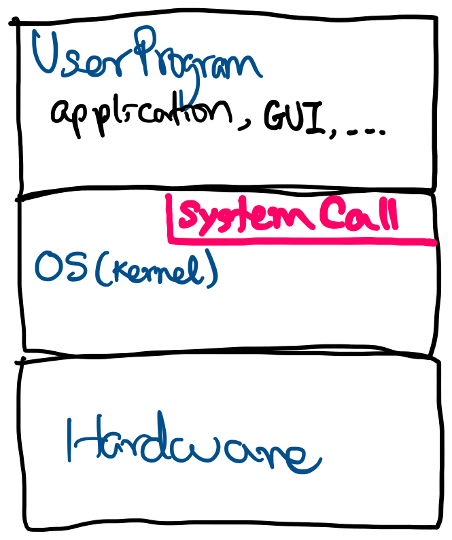 User Program
application, GUI, ...
System Call
OS (Kernel)
Hardware